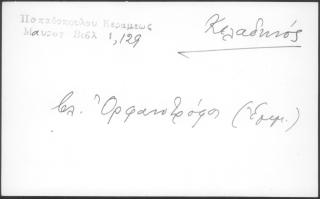 Παπαδοπουλου Κεραμεως
Μαυρογ Βιβλ 1,129
Κελαδηνός
βλ. Ὀρφανοτρόφος (Ἐρημ.)